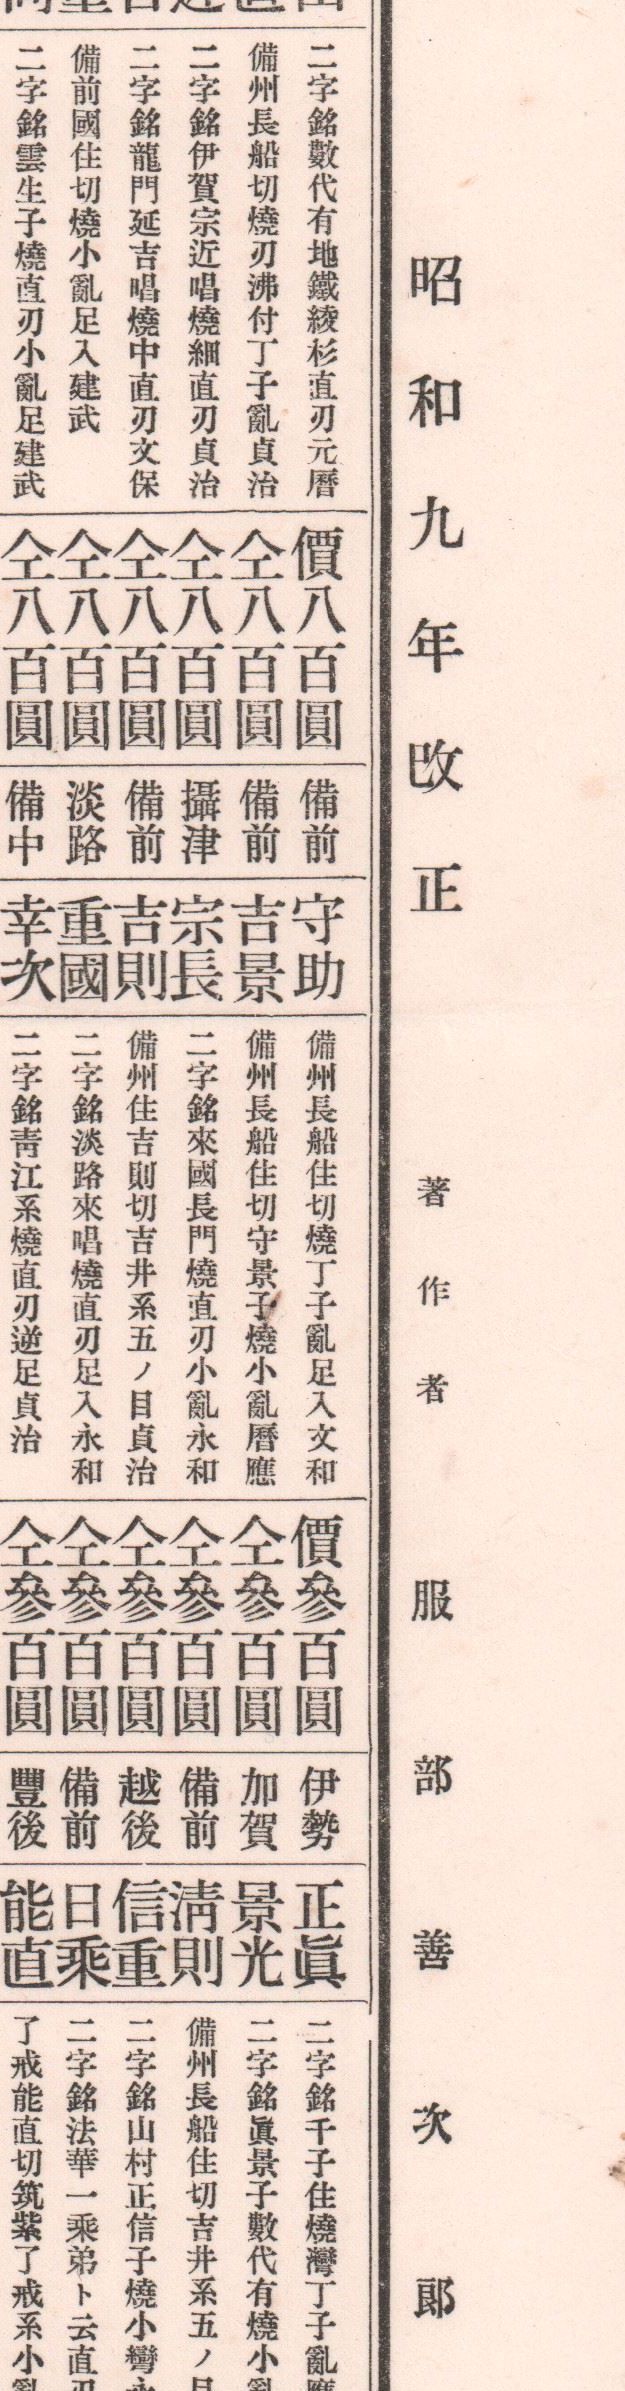 昭和九年改正
著作者　服部善次郎
二字銘數代有地鐵綾杉直刃元曆
備州長船切燒刃沸付丁子亂貞治
二字銘伊賀宗近唱燒細直刃貞治
二字銘龍門延吉唱燒中直刃文保
備前國住切燒小亂足入建武
二字銘雲生子燒直刃小亂足建武
價八百圓
仝八百圓
仝八百圓
仝八百圓
仝八百圓
仝八百圓
備前
備前
攝津
備前
淡路
備中
守助
吉景
宗長
吉則
重國
幸次
備州長船住切燒丁子亂足入文和
備州長船住切守景子燒小亂曆應
二字銘來國長門燒直刃小亂永和
備州住吉則切吉井系五ノ目貞治
二字銘淡路來唱燒直刃足入永和
二字銘靑江系燒直刃逆足貞治
價參百圓
仝參百圓
仝參百圓
仝參百圓
仝參百圓
仝參百圓
伊勢
加賀
備前
越後
備前
豐後
正眞
景光
淸則
信重
日乘
能直
二字銘千子住燒灣丁子亂應
二字銘眞景子數代有燒小亂
備州長船住切吉井系五ノ目
二字銘山村正信子燒小彎永
二字銘法華一乘弟ト云直刃
了戒能直切筑紫了戒系小亂